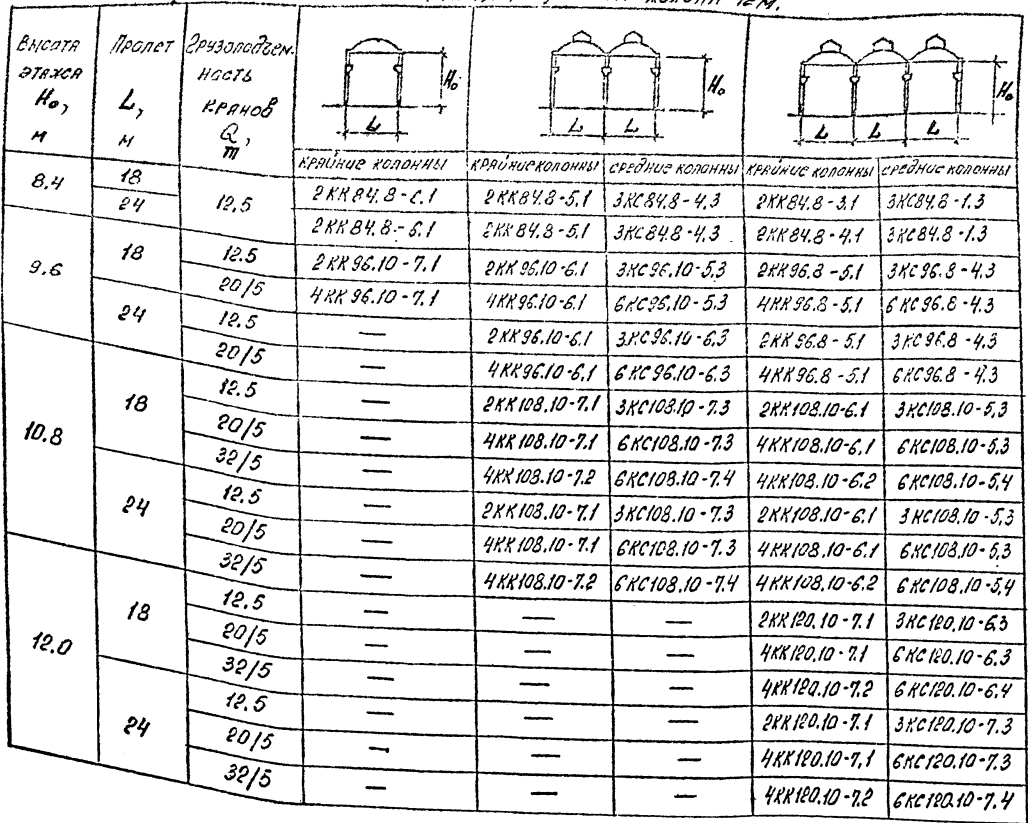 колонн 12м.
Высота этажа H₀, м | Пролет L, м | Грузоподъемность кранов Q, т | крайние колонны | крайние колонны | средние колонны | крайние колонны | средние колонны
H₀ L
H₀ L L
H₀ L L L
8.4 | 18 | 12,5 | 2КК84.8-6.1 | 2КК84.8-5.1 | 3КС84.8-4.3 | 2КК84.8-3.1 | 3КС84.8-1.3
24 | 2КК84.8-6.1 | 2КК84.8-5.1 | 3КС84.8-4.3 | 2КК84.8-4.1 | 3КС84.8-1.3
9.6 | 18 | 12.5 | 2КК96.10-7.1 | 2КК96.10-6.1 | 3КС96.10-5.3 | 2КК96.8-5.1 | 3КС96.8-4.3
20/5 | 4КК96.10-7.1 | 4КК96.10-6.1 | 6КС96.10-5.3 | 4КК96.8-5.1 | 6КС96.8-4.3
24 | 12.5 | — | 2КК96.10-6.1 | 3КС96.10-6.3 | 2КК96.8-5.1 | 3КС96.8-4.3
20/5 | — | 4КК96.10-6.1 | 6КС96.10-6.3 | 4КК96.8-5.1 | 6КС96.8-4.3
10.8 | 18 | 12.5 | — | 2КК108.10-7.1 | 3КС108.10-7.3 | 2КК108.10-6.1 | 3КС108.10-5.3
20/5 | — | 4КК108.10-7.1 | 6КС108.10-7.3 | 4КК108.10-6.1 | 6КС108.10-5.3
32/5 | — | 4КК108.10-7.2 | 6КС108.10-7.4 | 4КК108.10-6.2 | 6КС108.10-5.4
24 | 12.5 | — | 2КК108.10-7.1 | 3КС108.10-7.3 | 2КК108.10-6.1 | 3КС108.10-5.3
20/5 | — | 4КК108.10-7.1 | 6КС108.10-7.3 | 4КК108.10-6.1 | 6КС108.10-5.3
32/5 | — | 4КК108.10-7.2 | 6КС108.10-7.4 | 4КК108.10-6.2 | 6КС108.10-5.4
12.0 | 18 | 12.5 | — | — | — | 2КК120.10-7.1 | 3КС120.10-6.3
20/5 | — | — | — | 4КК120.10-7.1 | 6КС120.10-6.3
32/5 | — | — | — | 4КК120.10-7.2 | 6КС120.10-6.4
24 | 12.5 | — | — | — | 2КК120.10-7.1 | 3КС120.10-7.3
20/5 | — | — | — | 4КК120.10-7.1 | 6КС120.10-7.3
32/5 | — | — | — | 4КК120.10-7.2 | 6КС120.10-7.4